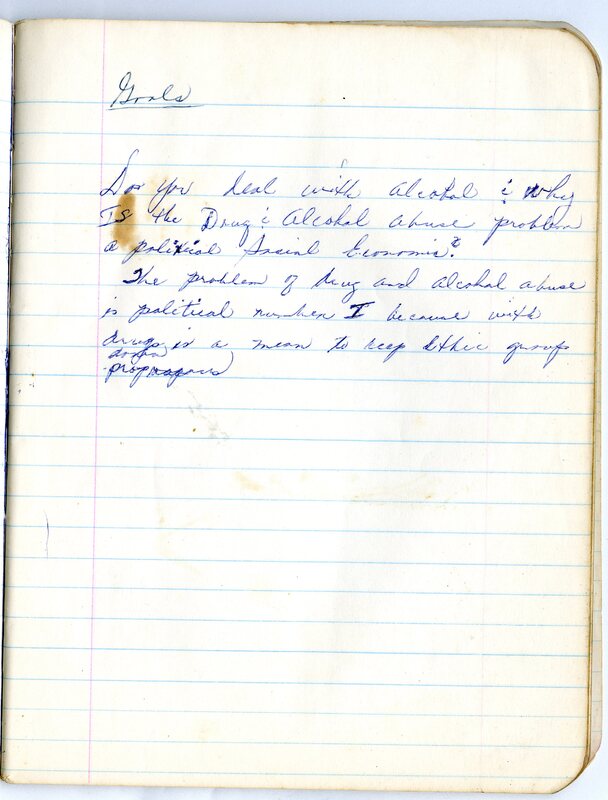 Goals
Do you deal with alcohol & why
Is the Drug & Alcohol abuse problem
a political Social Economis?
The problem of drug and alcohol abuse
is political number I because with
drugs is a mean to keep Ethic groups
down